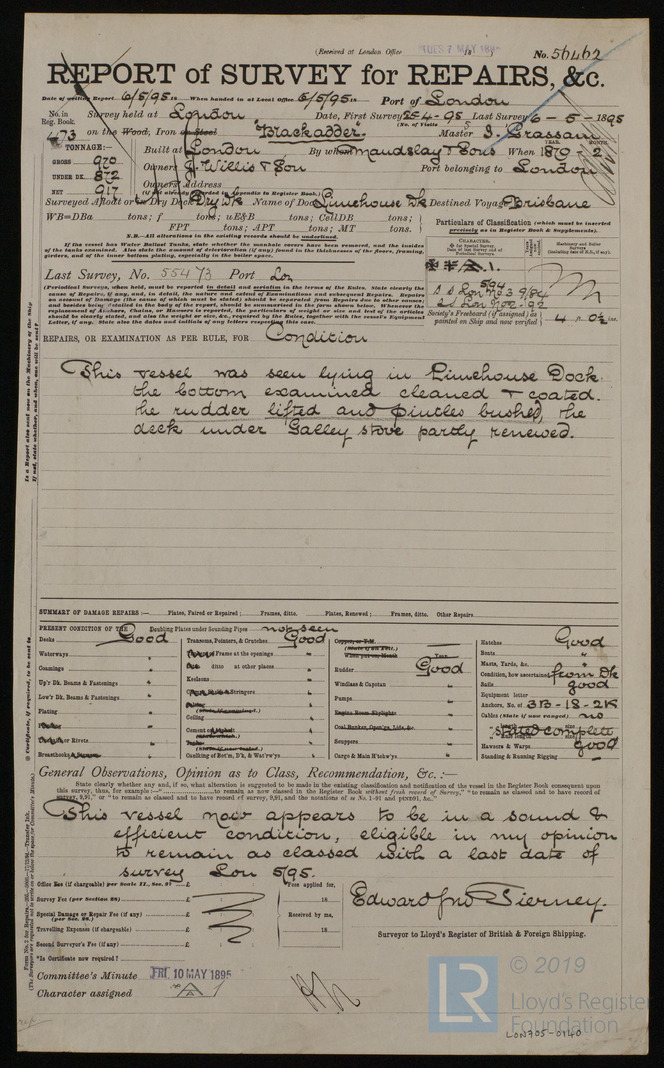 (Received at London Office TUES 7 MAY 1895 18 No. 56462
REPORT of SURVEY for REPAIRS, &c.
Date of writing Report 6/5/95 18 When handed in at Local Office 6/5/95 18 Port of London
No. in Reg. Book. Survey held at London Date, First Survey 25-4-95 Last Survey 6-5-1895
(No. of Visits 5
473 on the Wood, Iron or Steel "Blackadder" Master
TONNAGE:— Built at London By whom Maudslay & Sons When 1870-2
YEAR. MONTH.
GROSS 970 Owners J. Willis & Son Port belonging to London
UNDER DK. 872 Owners' Address
NET 917 (if not already recorded in Appendix to Register Book.)
Surveyed Afloat or in Dry Dock Dry Dk Name of Dock Limehouse Dk Destined Voyage Brisbane
WB=DBa tons; f tons; uE&B tons; CellDB tons;
FPT tons; APT tons; MT tons.
N.B.—All alterations in the existing records should be underlined.
If the vessel has Water Ballast Tanks, state whether the manhole covers have been removed, and the insides
of the tanks examined. Also state the amount of deterioration (if any) found in the thicknesses of the floors, framing,
girders, and of the inner bottom plating, especially in the boiler space.
Particulars of Classification (which must be inserted
precisely as in Register Book & Supplements).
CHARACTER.
Last Survey, No. 55473 Port Lon
(Periodical Surveys, when held, must be reported in detail and seriatim in the terms of the Rules. State clearly the
cause of Repairs, if any, and, in detail, the nature and extent of Examinations and subsequent Repairs. Repairs
on account of Damage (the cause of which must be stated) should be separated from Repairs due to other causes
Letter, if any. State also the dates and initials of any letters respecting this case.
Society's Freeboard (if assigned) as
painted on Ship and now verified 4 ft. 0½ ins.
REPAIRS, OR EXAMINATION AS PER RULE, FOR Condition
This vessel was seen lying in Limehouse Dock
the bottom examined cleaned & coated.
the rudder lifted and pintles bushed, the
deck under Galley stove partly renewed.
SUMMARY OF DAMAGE REPAIRS:— Plates, Faired or Repaired; Frames, ditto. Plates, Renewed; Frames, ditto. Other Repairs
PRESENT CONDITION OF THE Doubling Plates under Sounding Pipes not seen
Decks Good
Waterways "
Coamings "
Up'r Dk. Beams & Fastenings "
Low'r Dk. Beams & Fastenings "
Plating "
or Rivets "
Breasthooks "
Transoms, Pointers, & Crutches Good
Frames at the openings "
ditto at other places "
Keelsons "
Stringers "
Ceiling "
Cement "
Caulking of Bot'm, D'k, & Wat'rw'ys "
Rudder Good
Windlass & Capstan "
Pumps "
Engine Room Skylights
Coal Bunker, Open'gs, Lids, &c.
Scuppers "
Cargo & Main H'tchw'ys "
Hatches Good
Boats "
Masts, Yards, &c. "
Condition, how ascertained from Dk
Sails good
Equipment letter
Anchors, No. of 3B-1S-2K
Cables (State if now ranged) no
stated complete
Hawsers & Warps good
Standing & Running Rigging "
General Observations, Opinion as to Class, Recommendation, &c.:—
State clearly whether any, and if so, what alteration is suggested to be made in the existing classification and notification of the vessel in the Register Book consequent upon
this survey, thus, for example:—" to remain as now classed in the Register Book without fresh record of Survey," "to remain as classed and to have record of
survey, 9,91," or "to remain as classed and to have record of survey, 9,91, and the notations of ss No. 1-91 and ptND91, &c."
This vessel now appears to be in a sound &
efficient condition, eligible in my opinion
to remain as classed with a last date of
survey Lon 5/95.
Office Fee (if chargeable) per Scale II., Sec. 27 £
Survey Fee (per Section 28) £
Special Damage or Repair Fee (if any) £
(per Sec. 28.)
Travelling Expenses (if chargeable) £
Second Surveyor's Fee (if any) £
Fees applied for,
18
Received by me,
18
Edward Jno Tierney.
Surveyor to Lloyd's Register of British & Foreign Shipping.
*Is Certificate now required?
Committee's Minute FRI 10 MAY 1895
Character assigned A 1
LR
© 2019
Lloyd's Register
Foundation
LON705-0140